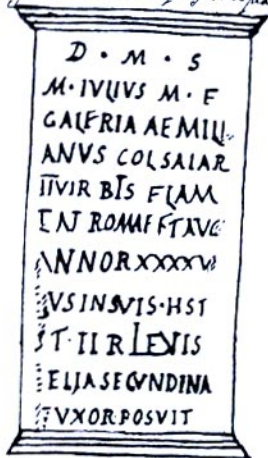 D · M · S
M · IVLIVS M · F
GALERIA AEMILI
ANVS COL SALAR
IIVIR BIS FLAM
ROMAE ET AVG
ANNOR XXXXVI
VS IN SVIS · H S T
T · II R LEVIS
ELIA SECVNDINA
VXOR · POSVIT